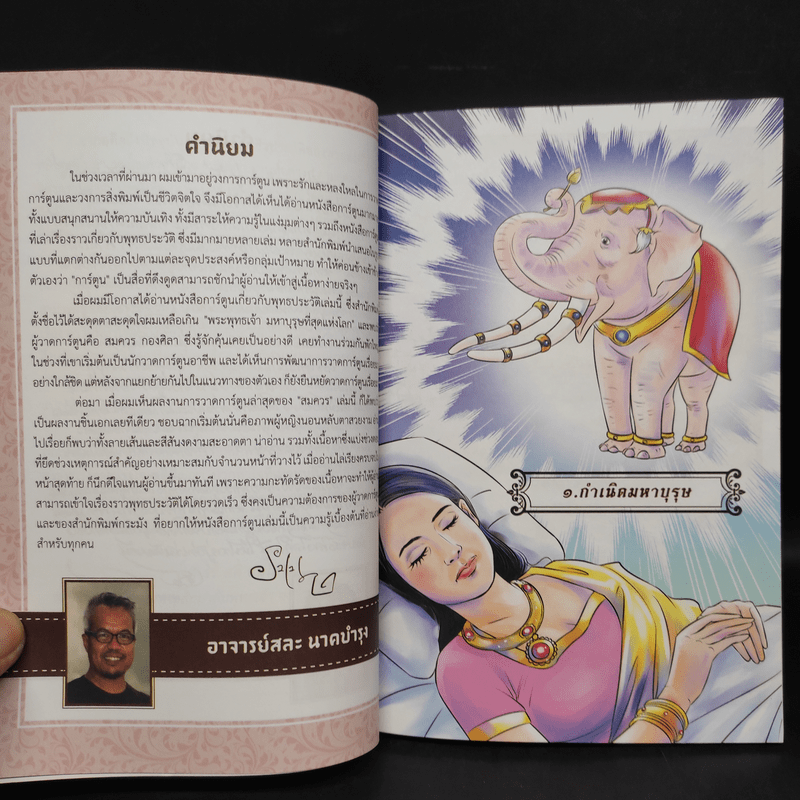 คำนิยม
ในช่วงเวลาที่ผ่านมา ผมเข้ามาอยู่วงการการ์ตูน เพราะรักและหลงใหลในการวา
การ์ตูนและวงการสิ่งพิมพ์เป็นชีวิตจิตใจ จึงมีโอกาสได้เห็นได้อ่านหนังสือการ์ตูนมากมาย
ทั้งแบบสนุกสนานให้ความบันเทิง ทั้งมีสาระให้ความรู้ในแง่มุมต่างๆ รวมถึงหนังสือการ์ตูน
ที่เล่าเรื่องราวเกี่ยวกับพุทธประวัติ ซึ่งมีมากมายหลายเล่ม หลายสำนักพิมพ์นำเสนอใน
แบบที่แตกต่างกันออกไปตามแต่ละจุดประสงค์หรือกลุ่มเป้าหมาย ทำให้ค่อนข้างเข้าข้าง
ตัวเองว่า "การ์ตูน" เป็นสื่อที่ดึงดูดสามารถชักนำผู้อ่านให้เข้าสู่เนื้อหาง่ายจริงๆ
เมื่อผมมีโอกาสได้อ่านหนังสือการ์ตูนเกี่ยวกับพุทธประวัติเล่มนี้ ซึ่งสำนักพิมพ์
ตั้งชื่อไว้ได้สะดุดตาสะดุดใจผมเหลือเกิน "พระพุทธเจ้า มหาบุรุษที่สุดแห่งโลก" และพบว่า
ผู้วาดการ์ตูนคือ สมควร กองศิลา ซึ่งรู้จักคุ้นเคยเป็นอย่างดี เคยทำงานร่วมกันพักใหญ่
ในช่วงที่เขาเริ่มต้นเป็นนักวาดการ์ตูนอาชีพ และได้เห็นการพัฒนาการวาดการ์ตูนเรื่อย
อย่างใกล้ชิด แต่หลังจากแยกย้ายกันไปในแนวทางของตัวเอง ก็ยังยืนหยัดวาดการ์ตูนเรื่อย
ต่อมา เมื่อผมเห็นผลงานการวาดการ์ตูนล่าสุดของ "สมควร" เล่มนี้ ก็ได้พบ
เป็นผลงานชิ้นเอกเลยทีเดียว ชอบฉากเริ่มต้นนั่นคือภาพผู้หญิงนอนหลับตาสวยงาม
ไปเรื่อยก็พบว่าทั้งลายเส้นและสีสันงดงามสะอาดตา น่าอ่าน รวมทั้งเนื้อหาซึ่งแบ่งช่วง
ที่ยึดช่วงเหตุการณ์สำคัญอย่างเหมาะสมกับจำนวนหน้าที่วางไว้ เมื่ออ่านไล่เรียงครบจบ
หน้าสุดท้าย ก็นึกดีใจแทนผู้อ่านขึ้นมาทันที เพราะความกะทัดรัดของเนื้อหาจะทำให้ผู้
สามารถเข้าใจเรื่องราวพุทธประวัติได้โดยรวดเร็ว ซึ่งคงเป็นความต้องการของผู้วาดการ์ตูน
และของสำนักพิมพ์กระมัง ที่อยากให้หนังสือการ์ตูนเล่มนี้เป็นความรู้เบื้องต้นที่อ่าน
สำหรับทุกคน
อาจารย์สละ นาคบำรุง
๑.กำเนิดมหาบุรุษ